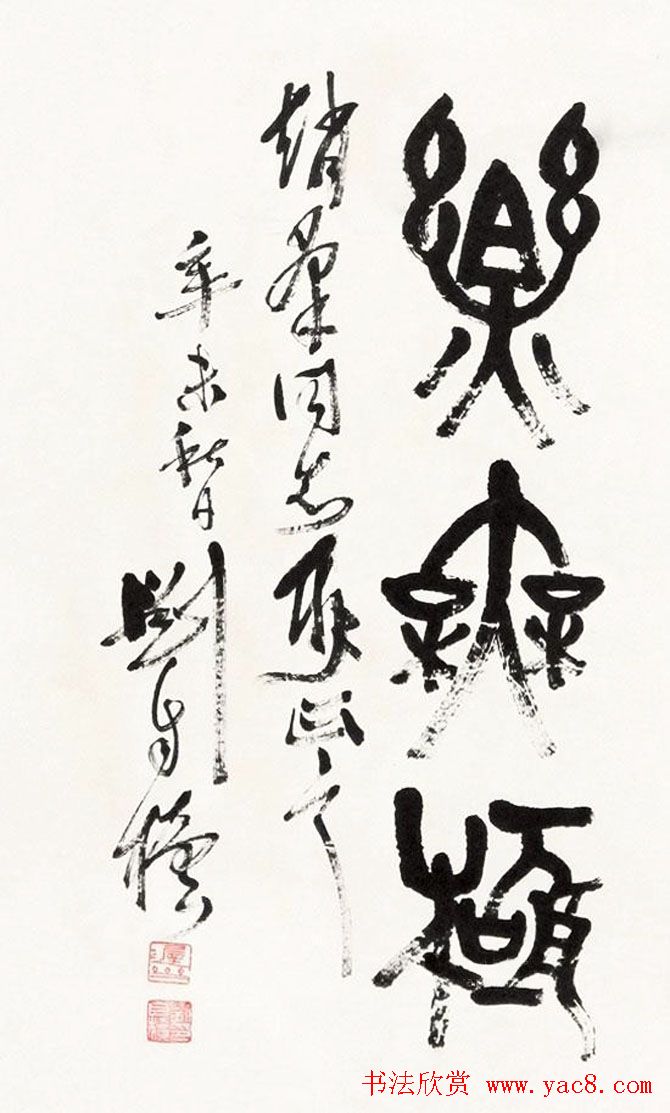 樂無極
趙同志雅正之
辛未秋月劉自櫝
书法欣赏 www.yac8.com